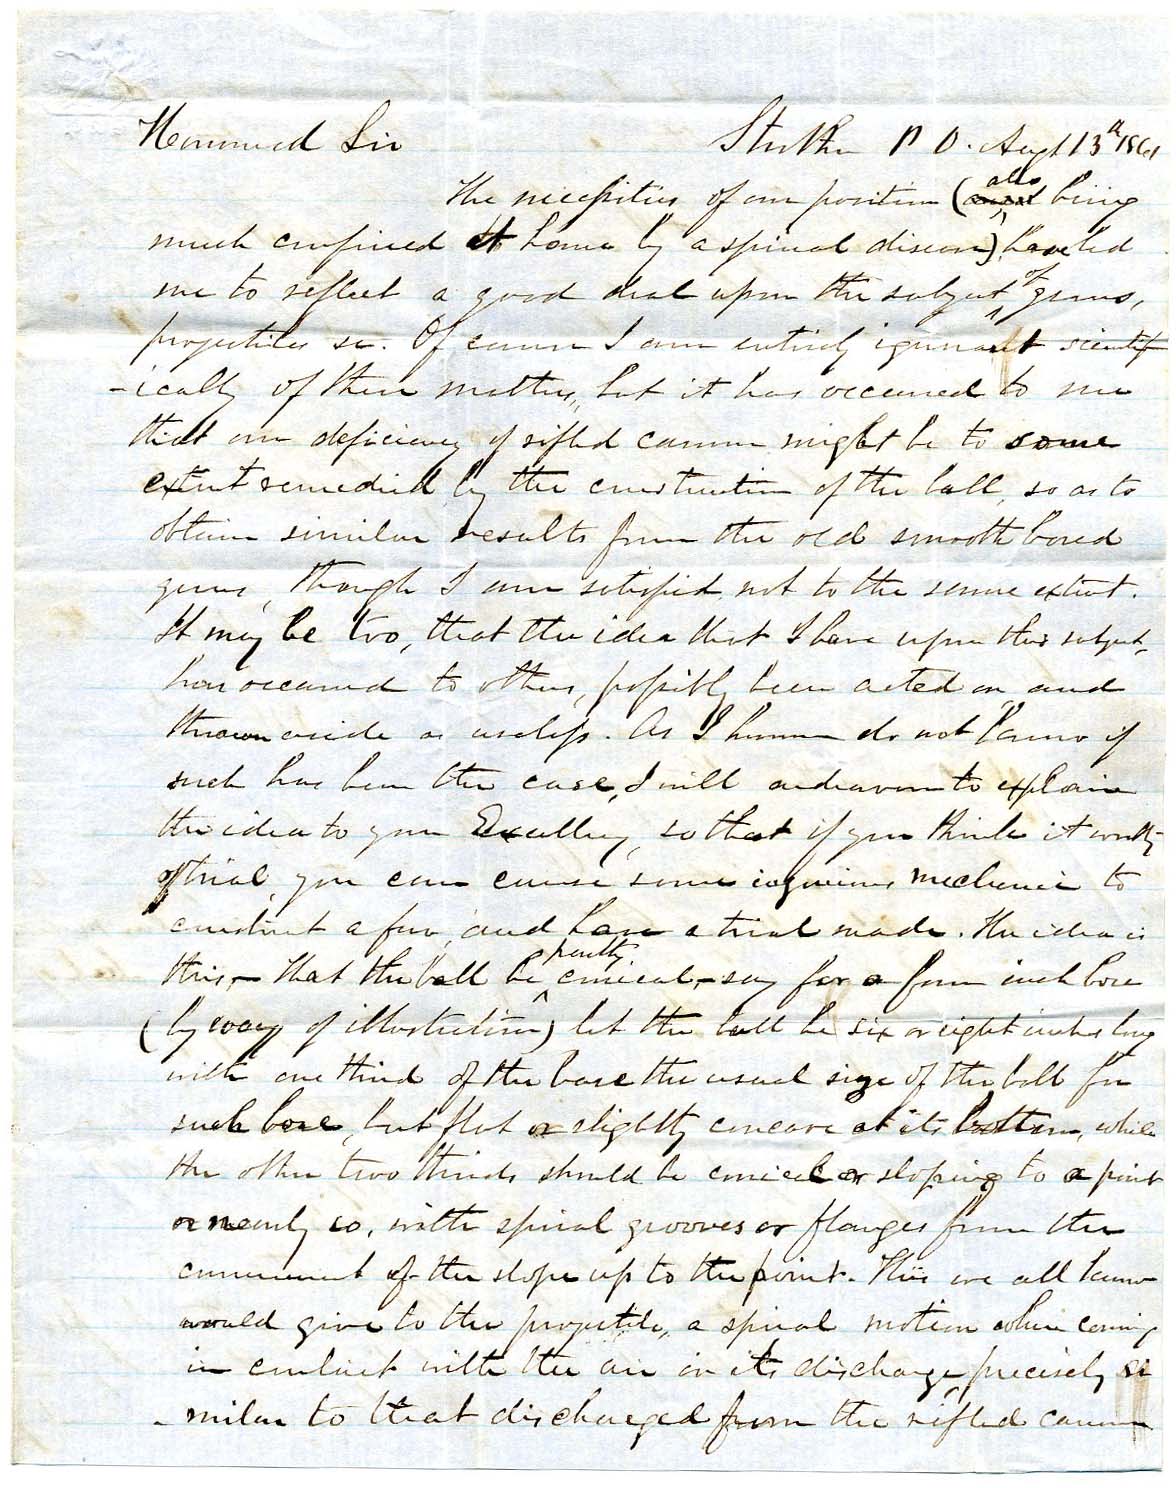 Honoured Sir P O. Augt 13th 1861
The necessities of our position (also being
much confined at home by a spinal disease) have led
me to reflect a good deal upon the subject of guns,
projectiles &c. Of course I am entirely ignorant scientif
-ically of these matters, but it has occurred to me
that our deficiency of rifled cannon might be to some
extent remedied by the construction of the ball, so as to
obtain similar results from the old smooth bored
guns, though I am satisfied not to the same extent.
It may be too, that the idea that I have upon this subject,
has occurred to others, possibly been acted on and
thrown aside as useless. As I however do not know if
such has been the case, I will endeavour to explain
the idea to your Excellency, so that if you think it worthy
of trial, you can cause some ingenious mechanic to
construct a few, and have a trial made. The idea is
this,- That the ball be partly conical,- say for a four inch bore
(by way of illustration) let the ball be six or eight inches long
with one third of the base the usual size of the ball for
such bore, but flat or slightly concave at its bottom, while
the other two thirds should be conical or sloping to a point
or nearly so, with spiral grooves or flanges from the
commencement of the slope up to the point. This we all know
would give to the projectile, a spiral motion when coming
in contact with the air in its discharge, precisely si
-milar to that discharged from the rifled cannon